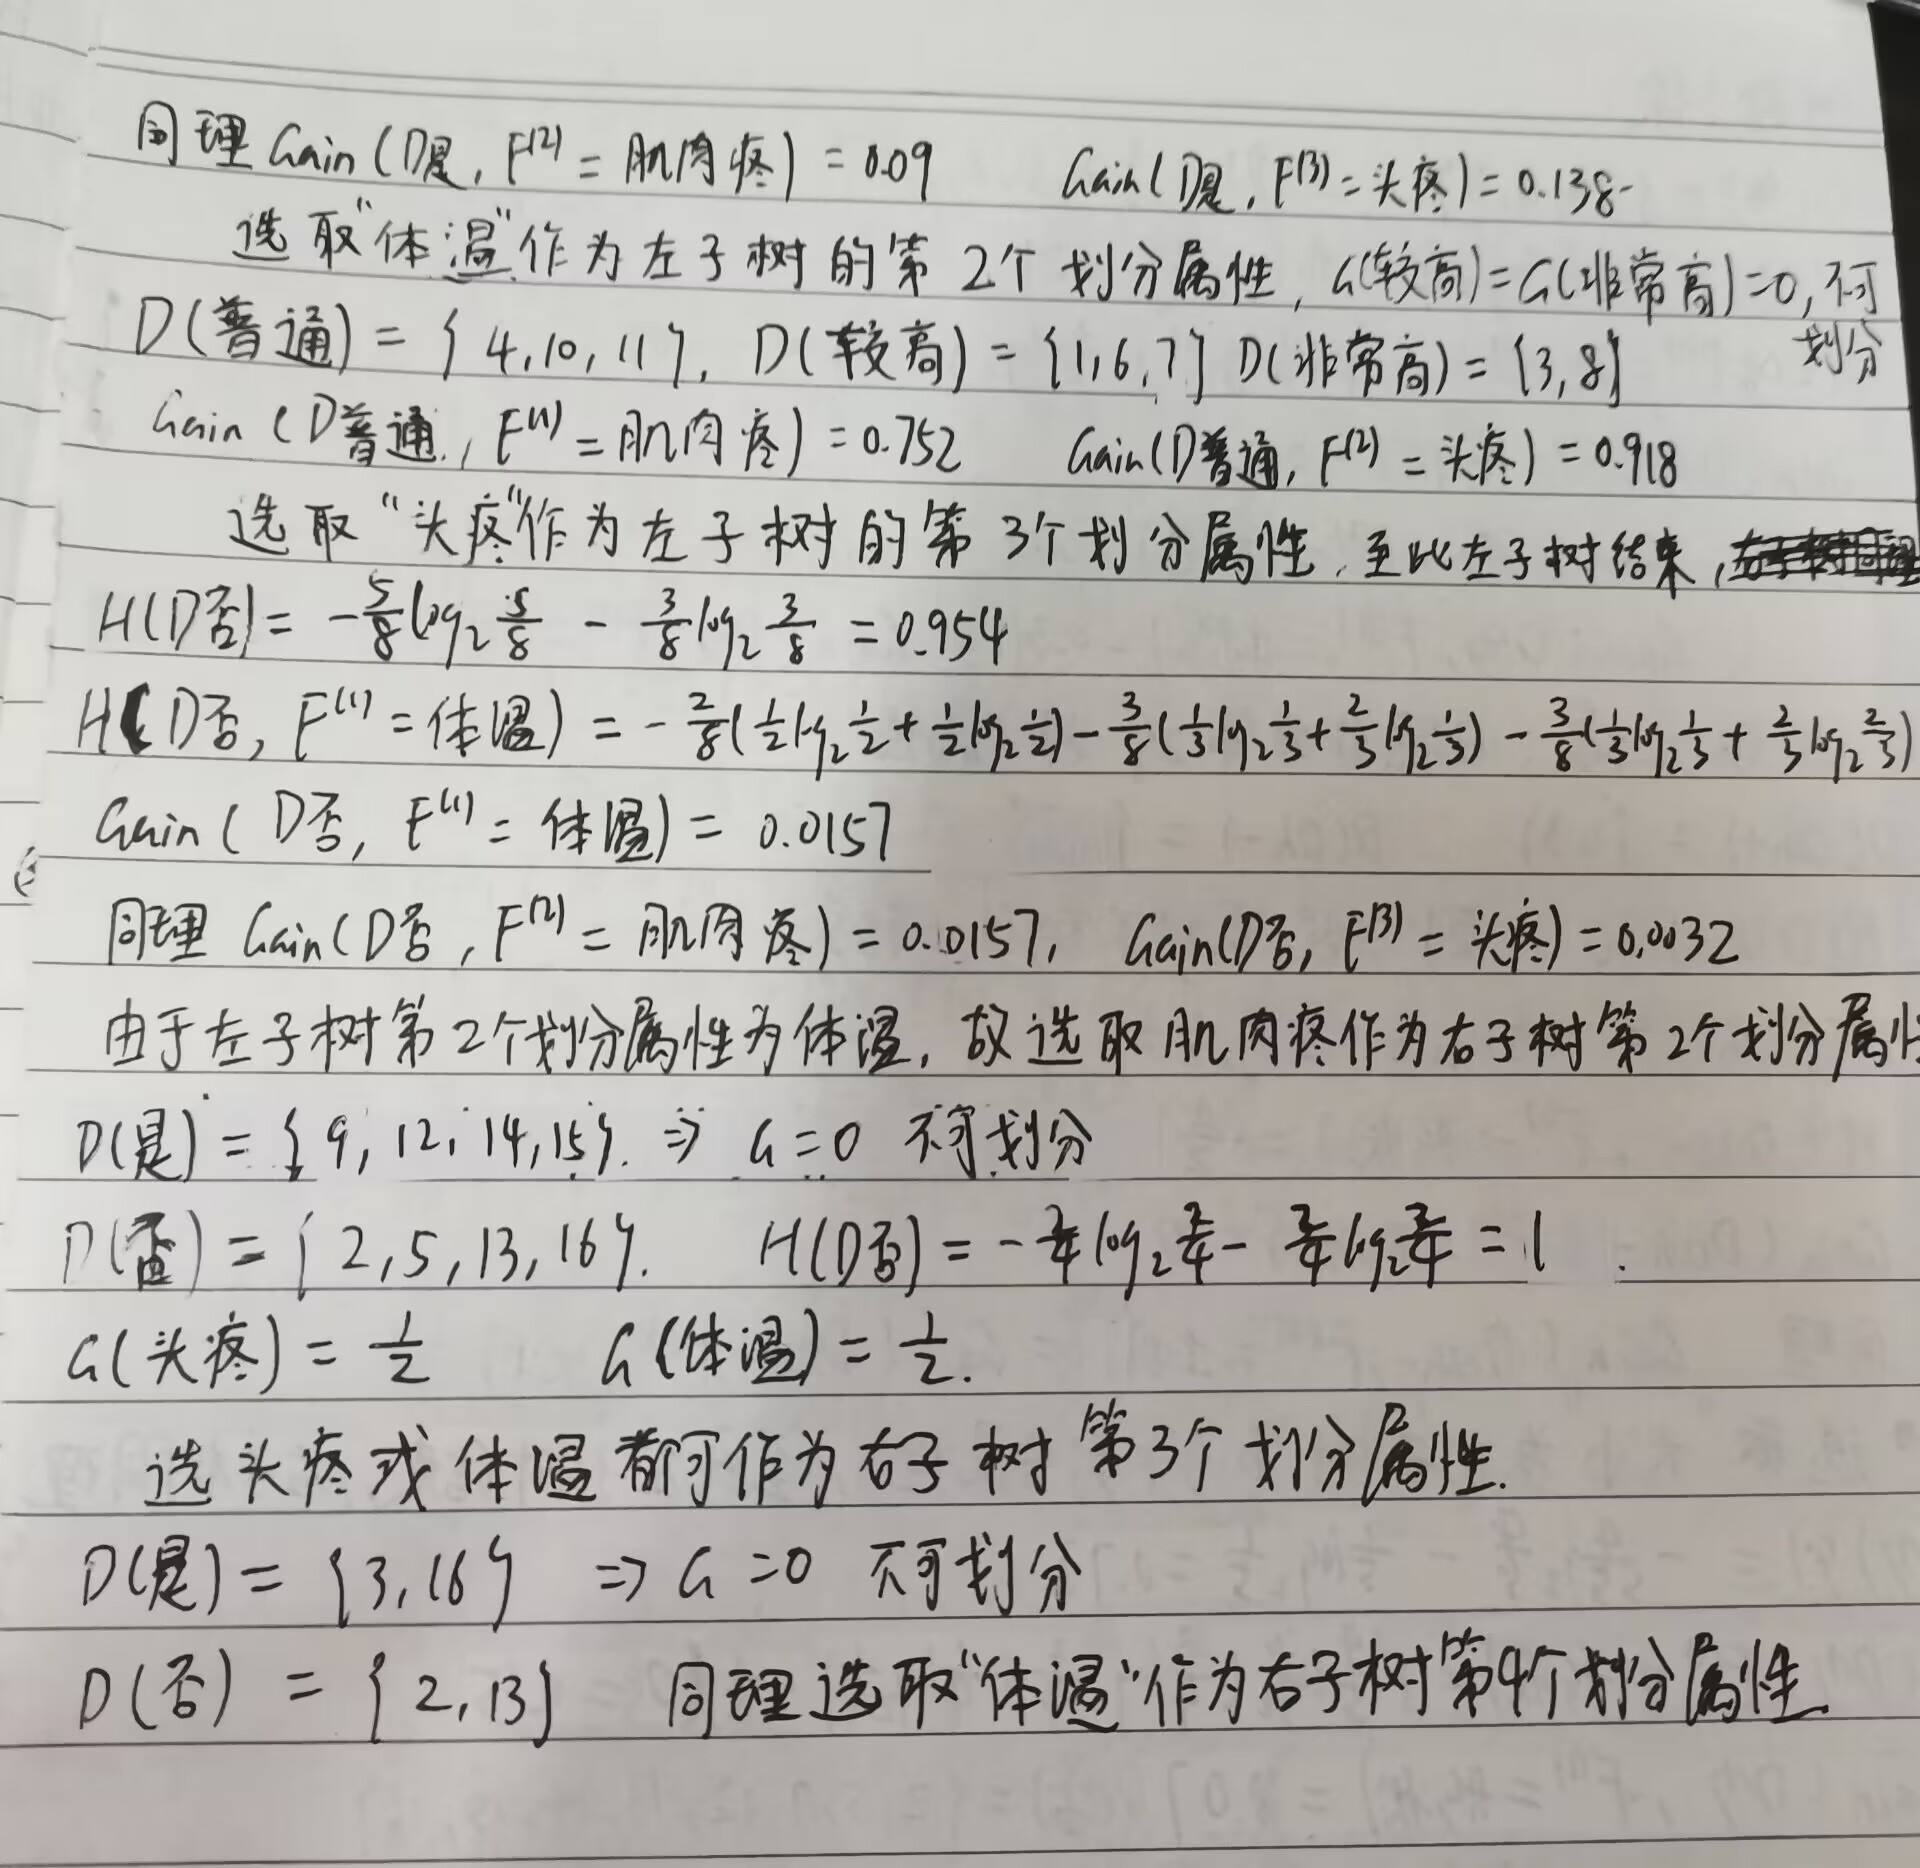 同理 Gain(D是, F⁽²⁾ = 肌肉疼) = 0.09 Gain(D是, F⁽³⁾ = 头疼) = 0.138
选取"体温"作为左子树的第2个划分属性, G(较高)=G(非常高)=0, 不可
划分
D(普通) = {4,10,11}, D(较高) = {1,6,7} D(非常高) = {3,8}
Gain(D普通, F⁽¹⁾ = 肌肉疼) = 0.752 Gain(D普通, F⁽²⁾ = 头疼) = 0.918
选取"头疼"作为左子树的第3个划分属性, 至此左子树结束,
H(D否) = -5/8 log₂ 5/8 - 3/8 log₂ 3/8 = 0.954
H(D否, F⁽¹⁾ = 体温) = -2/8(1/2 log₂ 1/2 + 1/2 log₂ 1/2) - 3/8(1/3 log₂ 1/3 + 2/3 log₂ 1/3) - 3/8(1/3 log₂ 1/3 + 2/3 log₂ 2/3)
Gain(D否, F⁽¹⁾ = 体温) = 0.0157
同理 Gain(D否, F⁽²⁾ = 肌肉疼) = 0.0157, Gain(D否, F⁽³⁾ = 头疼) = 0.0032
由于左子树第2个划分属性为体温, 故选取肌肉疼作为右子树第2个划分属性
D(是) = {9,12,14,15}. ⇒ G=0 不可划分
D(否) = {2,5,13,16}. H(D否) = -2/4 log₂ 2/4 - 2/4 log₂ 2/4 = 1
G(头疼) = 1/2 G(体温) = 1/2.
选头疼或体温都可作为右子树第3个划分属性.
D(是) = {3,16} ⇒ G=0 不可划分
D(否) = {2,13} 同理选取"体温"作为右子树第4个划分属性.